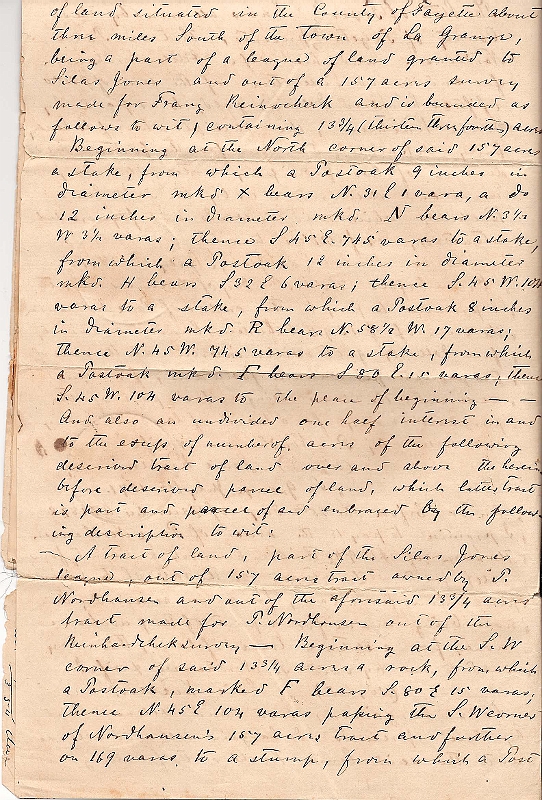 of land situated in the County, of Fayette about
three miles South of the Town of La Grange,
being a part of a league of land granted to
Silas Jones and out of a 157 acres survey
made for Franz and is bounded as
follows to wit; containing 13 3/4 (thirteen three fourths) acres
Beginning at the North corner of said 157 acres
a stake, from which a Postoak 9 inches in
diameter mkd X bears N. 31 E 1 vara, a do
12 inches in diameter mkd. N bears N. 3½
W 3½ varas; thence S 45 E. 745 varas to a stake,
from which a Postoak 12 inches in diameter
mkd. H bears S 32 E 6 varas; thence S. 45 W. 104
varas to a stake, from which a Postoak 8 inches
in diameter mkd. R bears N. 58½ W. 17 varas;
thence N. 45 W. 745 varas to a stake, from which
a Postoak mkd. F bears S 80 E. 15 varas; thence
S. 45 W. 104 varas to the place of beginning — —
And also an undivided one half interest in and
to the excess of number of, acres of the following
described tract of land over and above the herein
before described parcel of land, which latter tract
is part and parcel of and embraced by the follow-
ing description to wit:
— A tract of land, part of the Silas Jones
league, out of 157 acres tract owned by P.
Nordhausen and out of the aforesaid 13 3/4 acres
tract made for P. Nordhousen out of the
survey. — Beginning at the S. W
corner of said 13 3/4 acres a rock, from which
a Postoak, marked F bears S. 80 E 15 varas;
thence N. 45 E 104 varas passing the S. W corner
of Nordhausen's 157 acres tract and further
on 169 varas, to a stump, from which a Post